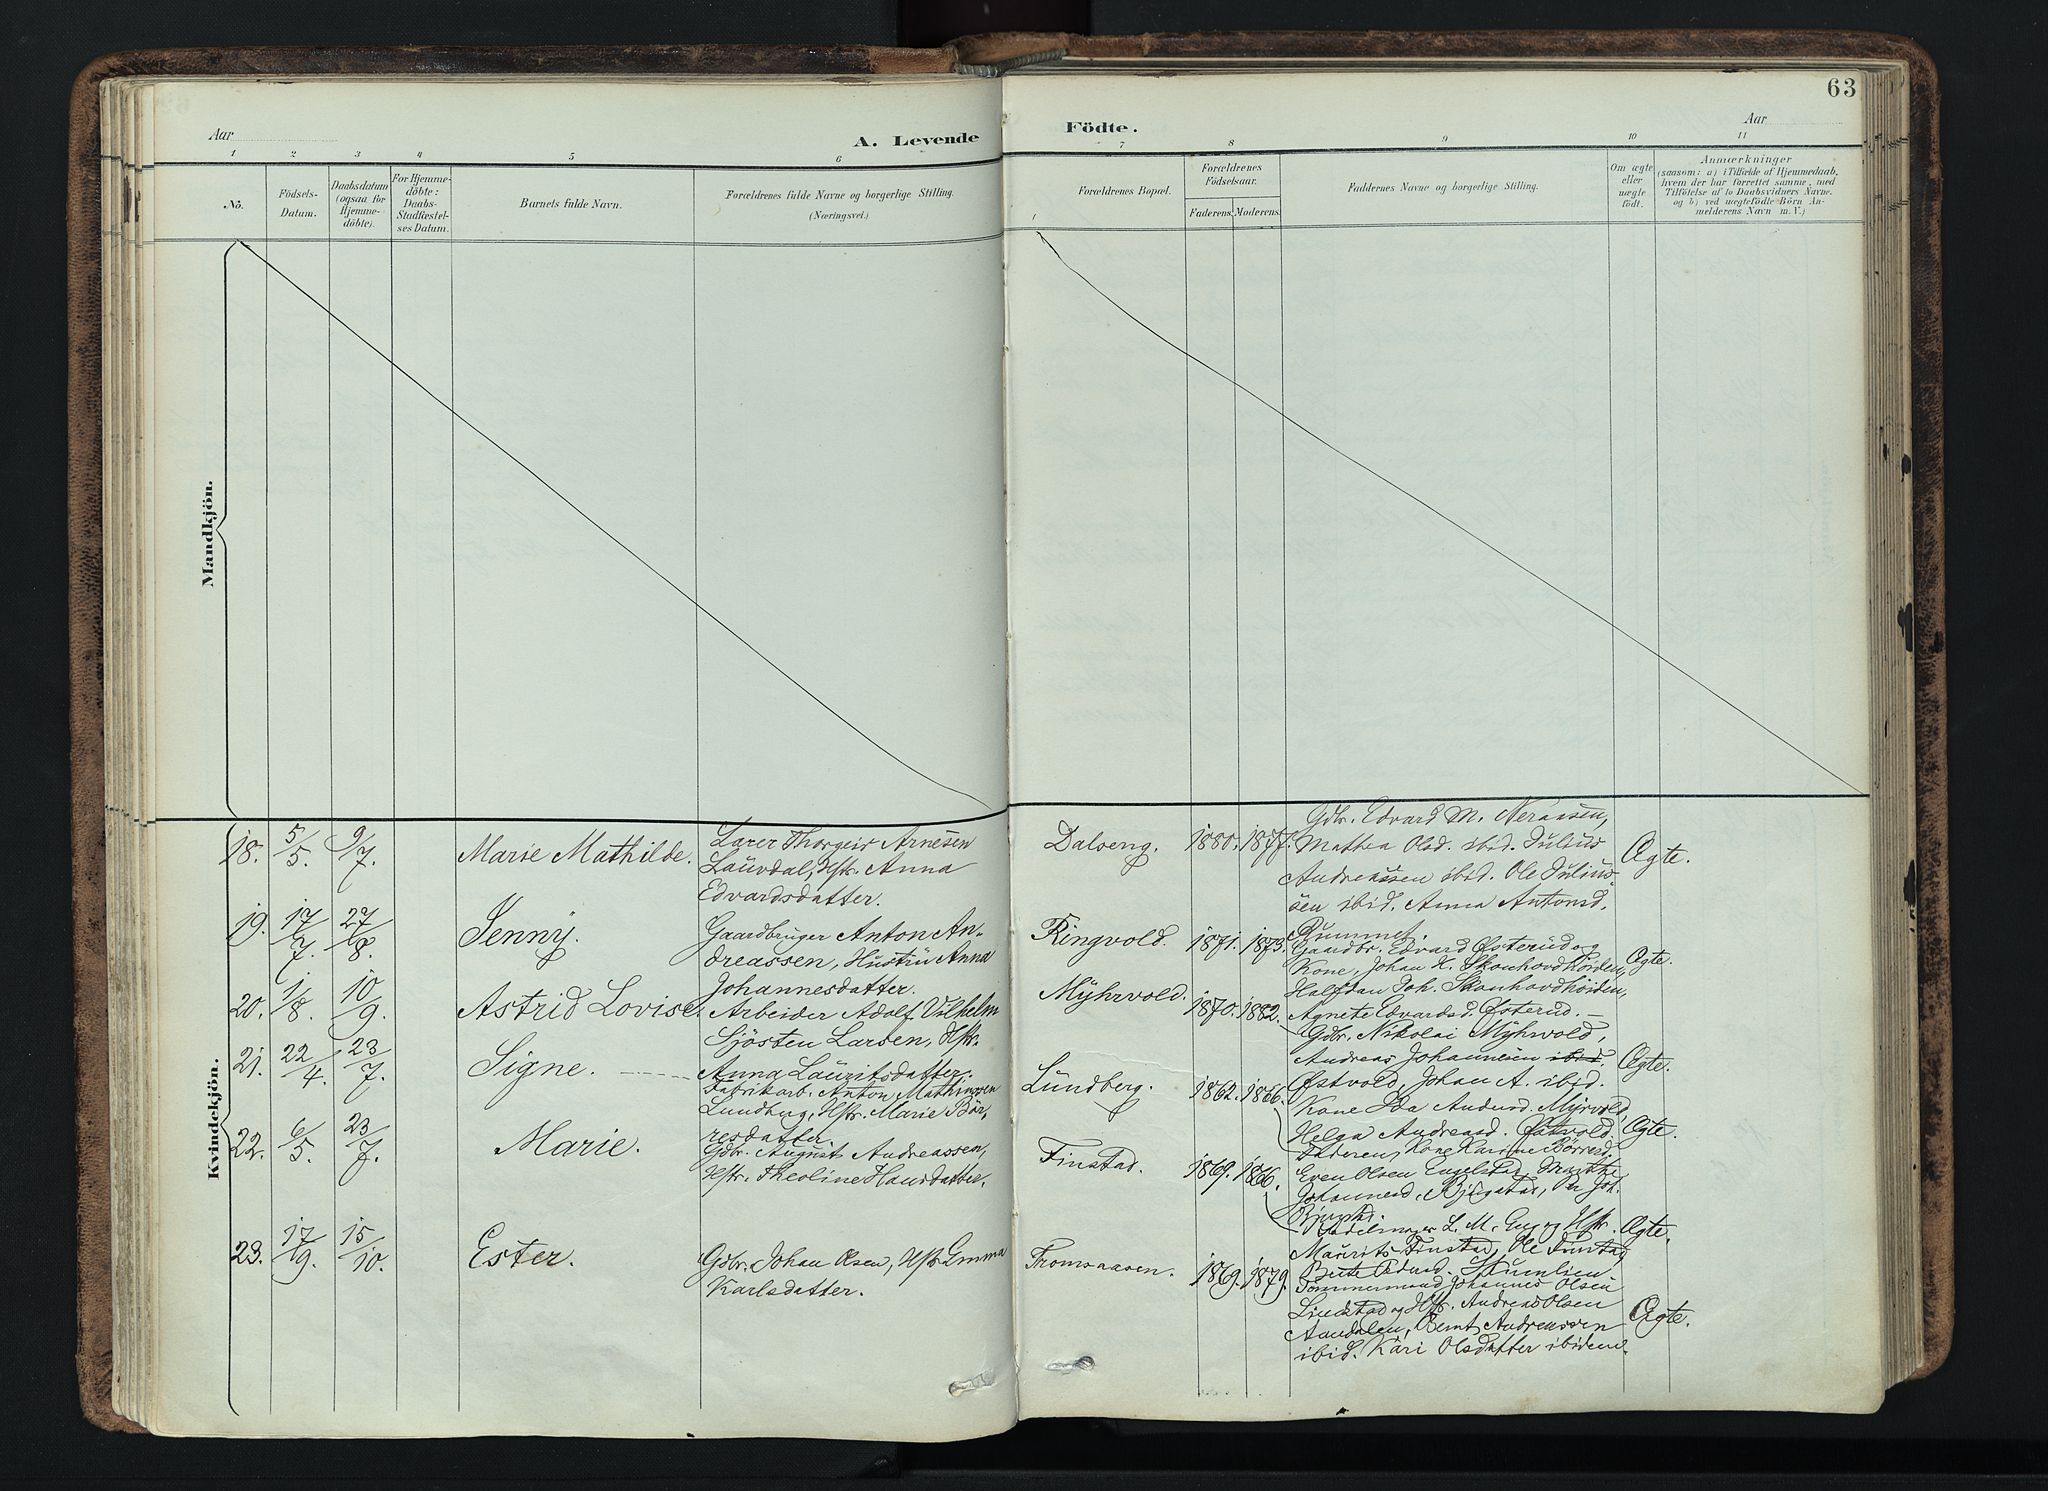 63
Aar
A. Levende
Födte.
Aar
1
2
3
4
5
6
7
8
9
10
11
No.
Födsels-
Datum.
Daabsdatum
(ogsaa for
Hjemme-
döbte).
For Hjemme-
döbte:
Daabs-
Stadfæstel-
ses Datum.
Barnets fulde Navn.
Forældrenes fulde Navne og borgerlige Stilling.
(Næringsvei.)
Forældrenes Bopæl.
Forældrenes
Födselsaar.
Faderens
Moderens
Faddernes Navne og borgerlige Stilling.
Om ægte
eller
uægte
født.
Anmærkninger
(saasom: a) i Tilfælde af Hjemmedaab,
hvem der har forrettet samme, med
Tilföielse af to Daabsvidners Navne.
og b) ved uægtefödte Börn An-
melderens Navn m. V.)
Mandkjön.
Kvindekjön.
18. 5/5. 9/7. Marie Mathilde.
Larer Thorgeir Arnesen
Lauvdal, Hstr. Anna
Edvardsdatter.
Dalseng. 1880. 1877.
Gdbr. Edvard M. Neraasen,
Mathea Olsd. ibid. Julius
Andreassen ibid. Ole Julius-
sen ibid. Anna Antonsd.
Rummet.
Ægte.
19. 17/7. 27/8. Jenny.
Gaardbruger Anton An-
dreassen, Hustru Anna
Johannesdatter.
Ringvold. 1871. 1873.
Gaardbr. Edvard Østerud og
Kone, Johan H. Skonhovdhøiden,
Halfdan Joh. Skonhovdhøiden,
Agnete Edvardsd. Østerud.
Ægte.
20. 1/8. 10/9. Astrid Lovise.
Arbeider Adolf Vilhelm
Sjösten Larsen, Hstr.
Anna Lauritsdatter.
Myhrvold. 1870. 1882.
Gdbr. Nikolai Myhrvold,
Andreas Johannesen ibid.
Østvold, Johan A. ibid.
Kone Ida Andersd. Myrvold,
Helga Andreasd. Østvold.
Ægte.
21. 22/4. 23/7. Signe.
Fabrikarb. Anton Mathinsen
Lundberg, Hstr. Marie Bör-
resdatter.
Lundberg. 1862. 1866.
Faderen, Kone Karine Børresd.
Even Olsen Engelstad,
Johannesd.
Ægte.
22. 6/5. 23/7. Marie.
Gdbr. August Andreassen,
Hstr. Theoline Hansdatter.
Finstad. 1869. 1866.
L. M. Eng og Hstr.
Maurits Finstad, Ole Finstad,
Ægte.
23. 17/9. 15/10. Ester.
Gdbr. Johan Olsen, Hstr Emma
Karlsdatter.
Thomsaasen. 1869. 1879.
Tømmermand Johannes Olsen
Lindstad og Hstr. Andreas Olsen
Aandalen, Bernt Andreassen
ibid. Kari Olsdatter ibidem.
Ægte.